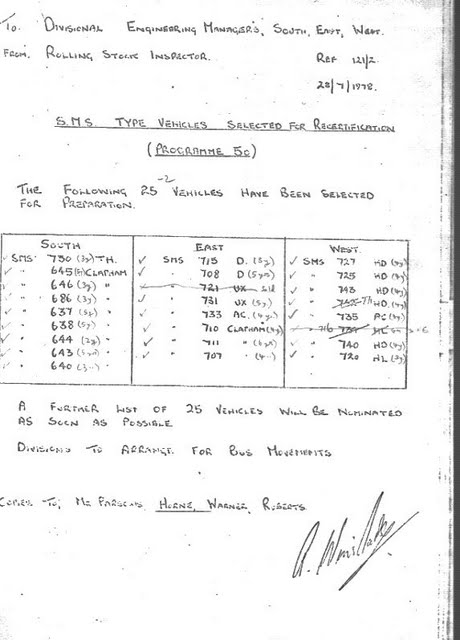 To. DIVISIONAL ENGINEERING MANAGER'S, SOUTH, EAST, WEST.
FROM. ROLLING STOCK INSPECTOR. REF 121/2
28/7/1978.
S.M.S. TYPE VEHICLES SELECTED FOR RECERTIFICATION
(PROGRAMME 5c)
-2
THE FOLLOWING 25 VEHICLES HAVE BEEN SELECTED
FOR PREPARATION.
SOUTH
✓ SMS 730 (3y) TH.
✓ " 645 CLAPHAM
✓ " 646 (3y) "
✓ " 686 (3y) "
✓ " 637 (5y) "
✓ " 638 (5y) "
✓ " 644 (3y) "
✓ " 643 "
✓ " 640
EAST
✓ SMS 715 D.
✓ " 708 D
" 721 UX
✓ " 731 UX (5y)
✓ " 733 AC. (4y)
✓ " 710 CLAPHAM
✓ " 711 "
✓ " 707 "
WEST.
✓ SMS 727 HD
✓ " 725 HD
✓ " 743 HD
" HD
✓ " 735 PC
716
✓ " 740 HD
✓ " 720 NL
A FURTHER LIST OF 25 VEHICLES WILL BE NOMINATED
AS SOON AS POSSIBLE
DIVISIONS TO ARRANGE FOR BUS MOVEMENTS
COPIES TO; MR PARSONS, HORNE, WARNER, ROBERTS